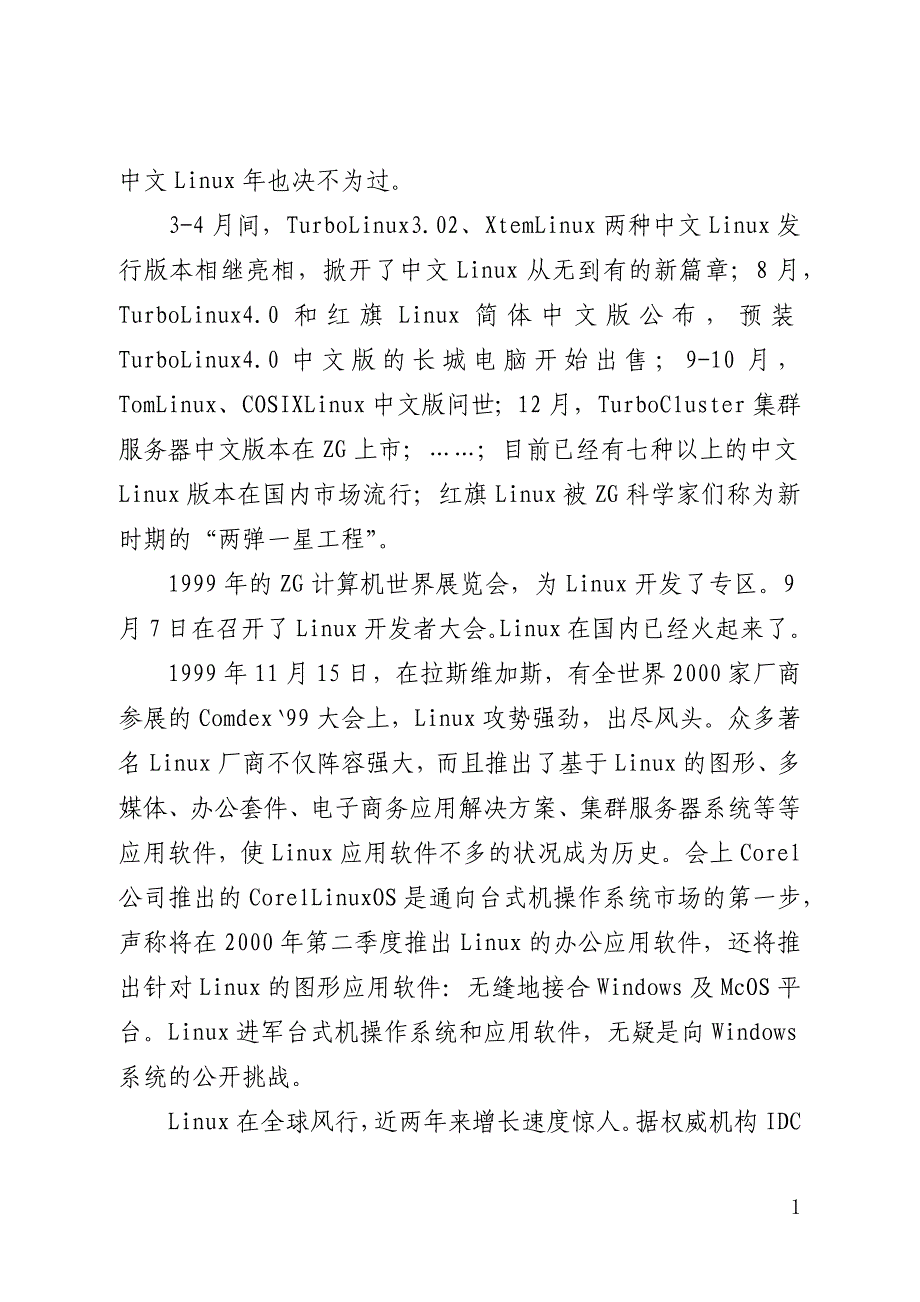 中文Linux年也决不为过。
3-4月间，TurboLinux3.02、XtemLinux两种中文Linux发
行版本相继亮相，掀开了中文Linux从无到有的新篇章；8月，
TurboLinux4.0和红旗Linux简体中文版公布，预装
TurboLinux4.0中文版的长城电脑开始出售；9-10月，
TomLinux、COSIXLinux中文版问世；12月，TurboCluster集群
服务器中文版本在ZG上市；……；目前已经有七种以上的中文
Linux版本在国内市场流行；红旗Linux被ZG科学家们称为新
时期的“两弹一星工程”。
1999年的ZG计算机世界展览会，为Linux开发了专区。9
月7日在召开了Linux开发者大会。Linux在国内已经火起来了。
1999年11月15日，在拉斯维加斯，有全世界2000家厂商
参展的Comdex‵99大会上，Linux攻势强劲，出尽风头。众多著
名Linux厂商不仅阵容强大，而且推出了基于Linux的图形、多
媒体、办公套件、电子商务应用解决方案、集群服务器系统等等
应用软件，使Linux应用软件不多的状况成为历史。会上Corel
公司推出的CorelLinuxOS是通向台式机操作系统市场的第一步，
声称将在2000年第二季度推出Linux的办公应用软件，还将推
出针对Linux的图形应用软件：无缝地接合Windows及McOS平
台。Linux进军台式机操作系统和应用软件，无疑是向Windows
系统的公开挑战。
Linux在全球风行，近两年来增长速度惊人。据权威机构IDC
1